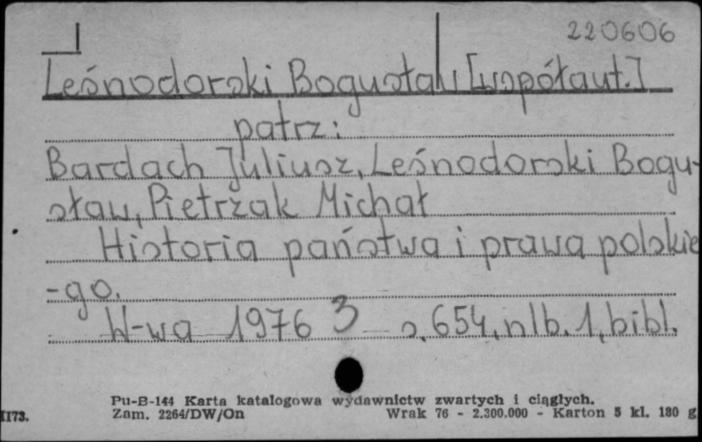 220606
Leśnodorski Bogusław [współaut.]
patrz:
Bardach Juliusz, Leśnodorski Bogu-
sław, Pietrzak Michał
Historia państwa i prawa polskie
-go.
W-wa 1976 3 s. 654, nlb. 1, bibl.
Pu-B-144 Karta katalogowa wydawnictw zwartych i ciągłych.
1173. Zam. 2264/DW/On Wrak 76 - 2.300.000 - Karton 5 kl. 180 g